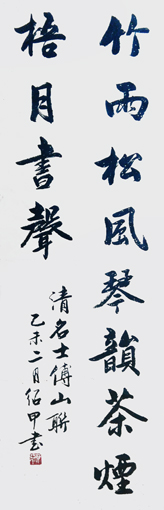 竹雨松風琴韻茶煙
梧月書聲
清名士傅山聯
乙未二月紹甲書